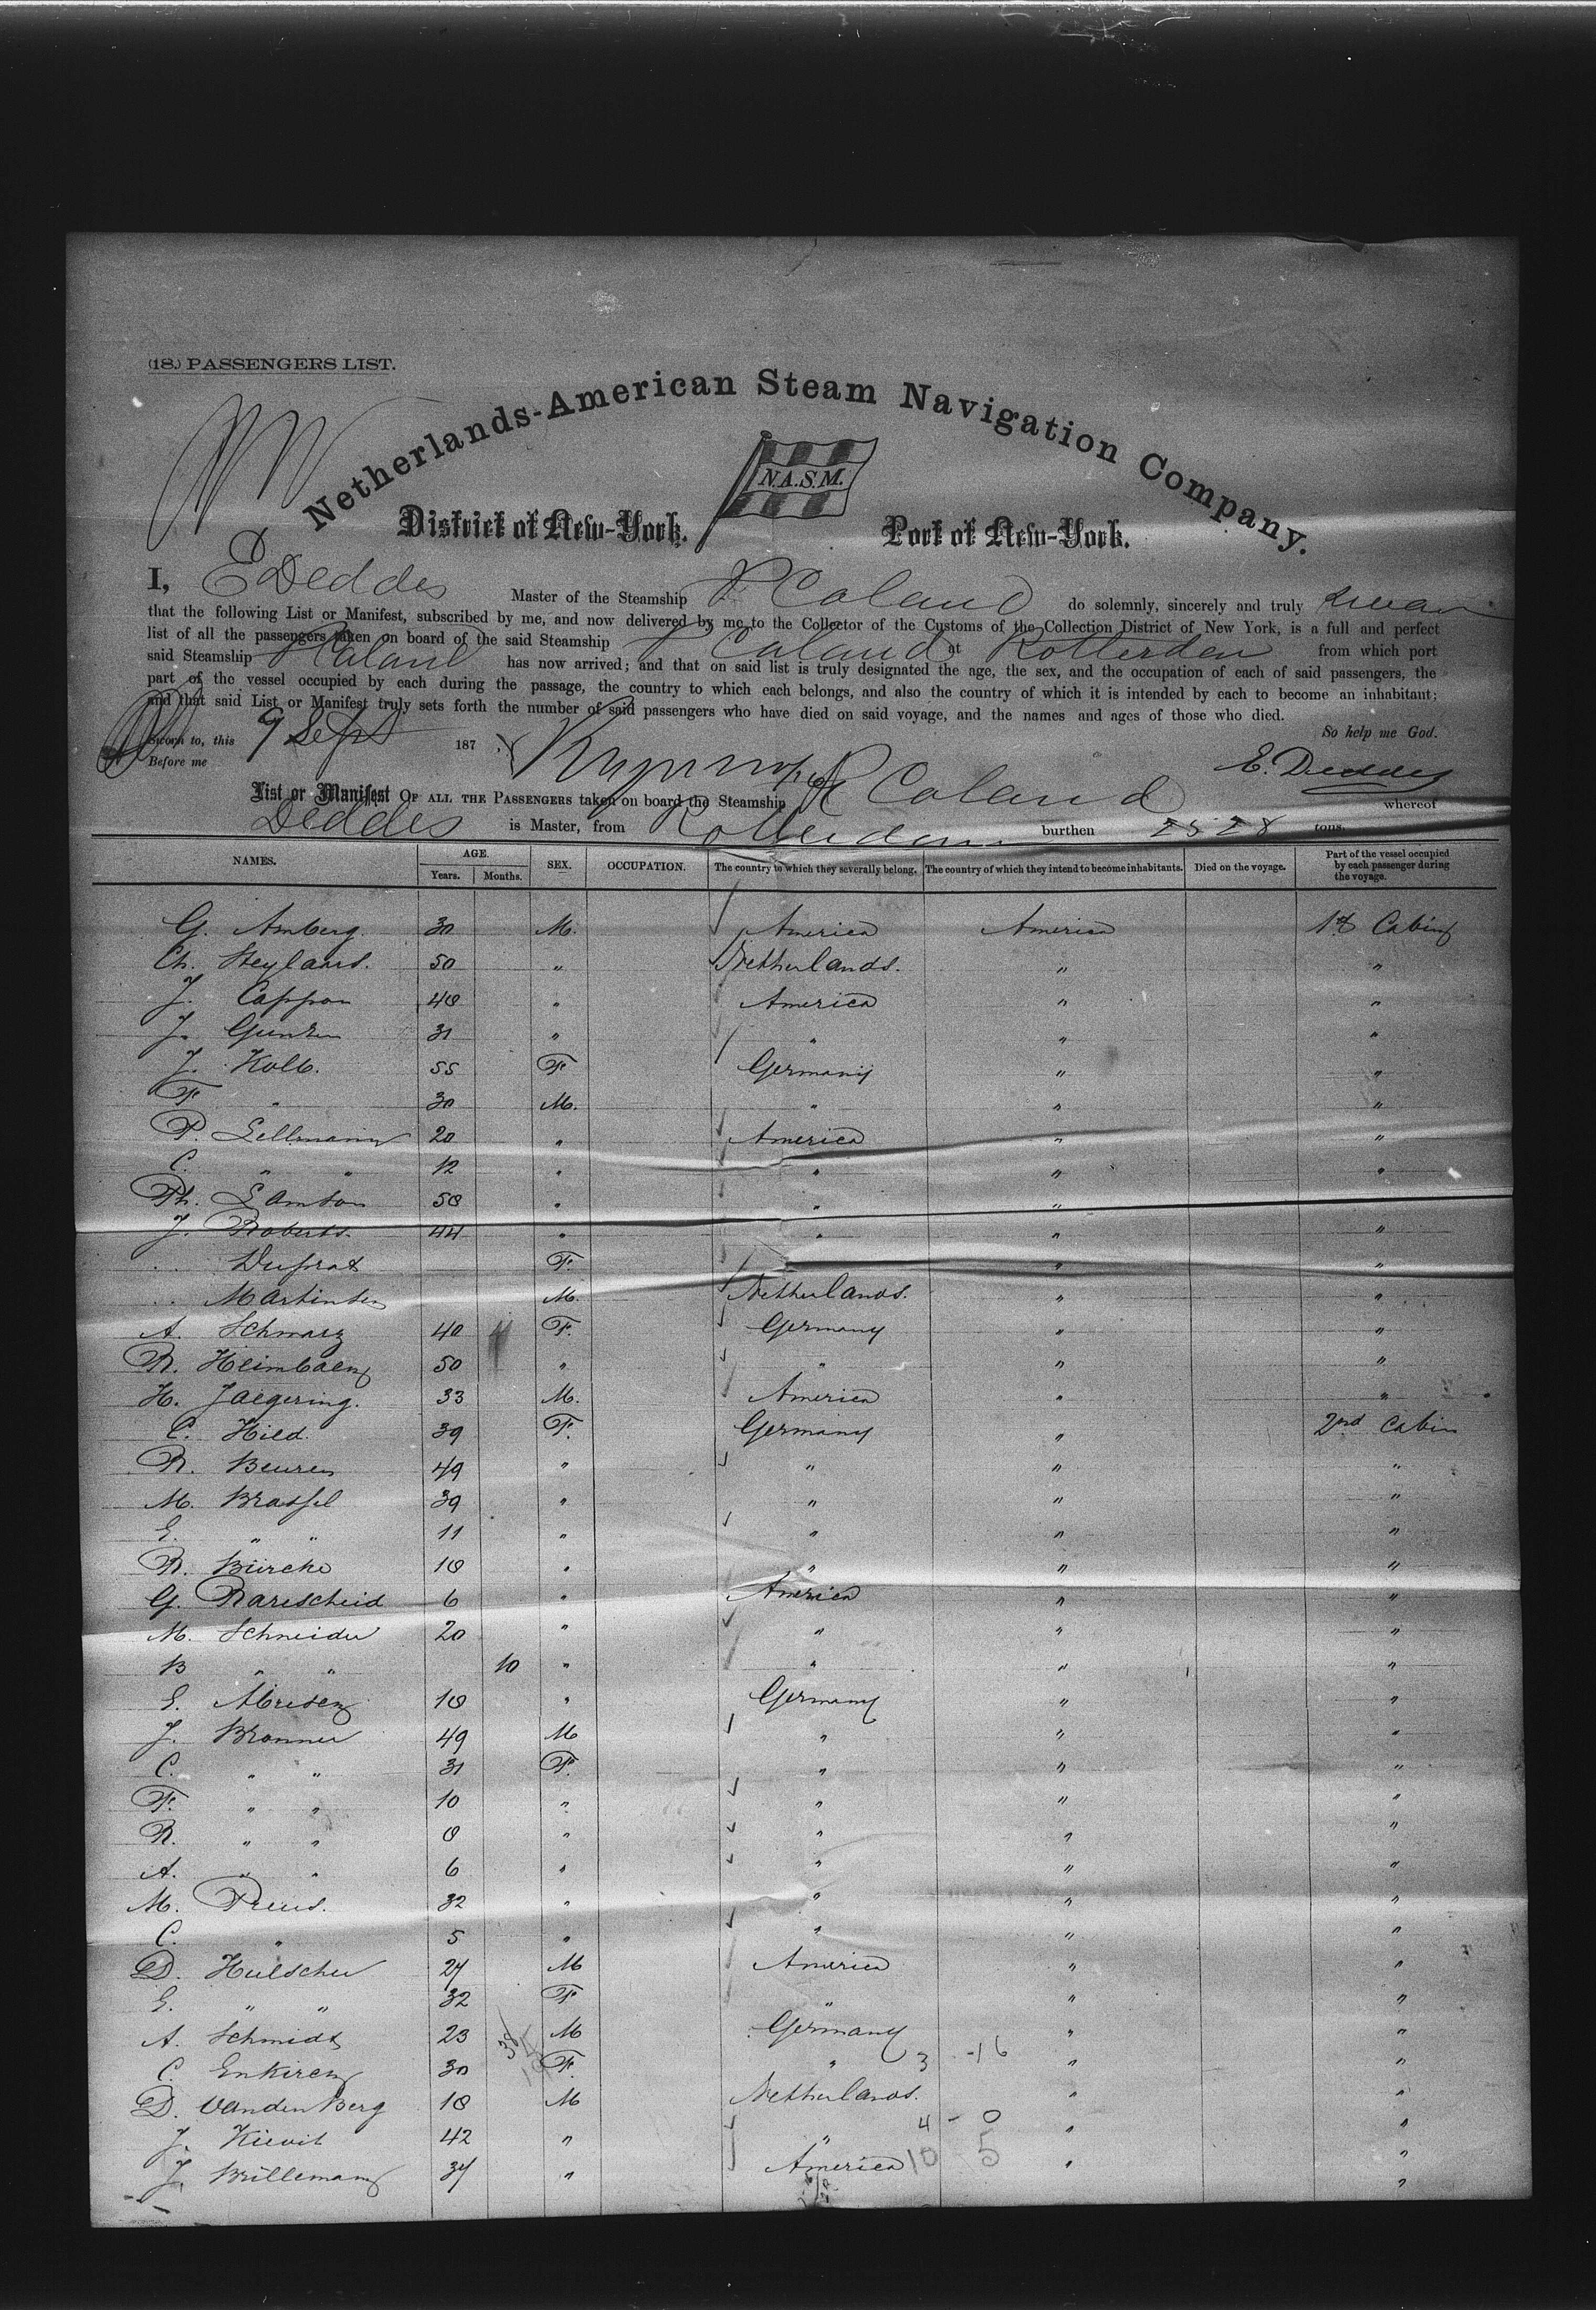 (18.) PASSENGERS LIST.
Netherlands-American Steam Navigation Company.
N.A.S.M.
District of New-York. Port of New-York.
I, E Deddes Master of the Steamship P Caland do solemnly, sincerely and truly swear
that the following List or Manifest, subscribed by me, and now delivered by me to the Collector of the Customs of the Collection District of New York, is a full and perfect
list of all the passengers taken on board of the said Steamship P Caland at Rotterdam from which port
said Steamship P Caland has now arrived; and that on said list is truly designated the age, the sex, and the occupation of each of said passengers, the
part of the vessel occupied by each during the passage, the country to which each belongs, and also the country of which it is intended by each to become an inhabitant;
and that said List or Manifest truly sets forth the number of said passengers who have died on said voyage, and the names and ages of those who died.
Sworn to, this 9 Sept 187 So help me God.
Before me E. Deddes
List or Manifest OF ALL THE PASSENGERS taken on board the Steamship P Caland whereof
Deddes is Master, from Rotterdam burthen tons.
NAMES. AGE. Years. Months. SEX. OCCUPATION. The country to which they severally belong. The country of which they intend to become inhabitants. Died on the voyage. Part of the vessel occupied by each passenger during the voyage.
G. Amberg. 30 M. America America 1st Cabin
Ch. Steylaars. 50 " Netherlands. " "
J. Cappon 48 " America " "
J. Gunther 31 " " " "
J. Kolb. 55 F. Germany " "
F. " 30 M. " " "
P. Sellmann 20 " America " "
C. " " 12 " " " "
Ph. Samson 58 " " "
J. Roberts. 44 " " " "
Duprat F. " "
Martinsen M. Netherlands. " "
A. Schwarz 40 F. Germany " "
R. Heimbach 50 " " " "
H. Jaegering. 33 M. America " "
C. Hild. 39 F. Germany " 2nd Cabin
R. Beuren 49 " " " "
M. Brassel 39 " " " "
E. " " 11 " " " "
R. Bürcke 18 " " " "
G. Rarescheid 6 " America " "
M. Schneider 20 " " " "
B " " 10 " " " "
E. 18 " Germany " "
J. Bronner 49 M " " "
C. " " 31 F. " " "
F. " " 10 " " " "
R. " " 8 " " " "
A. " " 6 " " " "
M. Preus. 32 " " " "
C. " 5 " " " "
D. Hülscher 27 M America " "
E. " " 32 F " " "
A. Schmidt 23 M Germany " "
C. Enkirch 30 F. " 3 -16 " "
D. Vanden Berg 18 M Netherlands. " "
J. Kievit 42 " " 4 - 0 " "
J. Brillemann 37 " America 10 5 " "